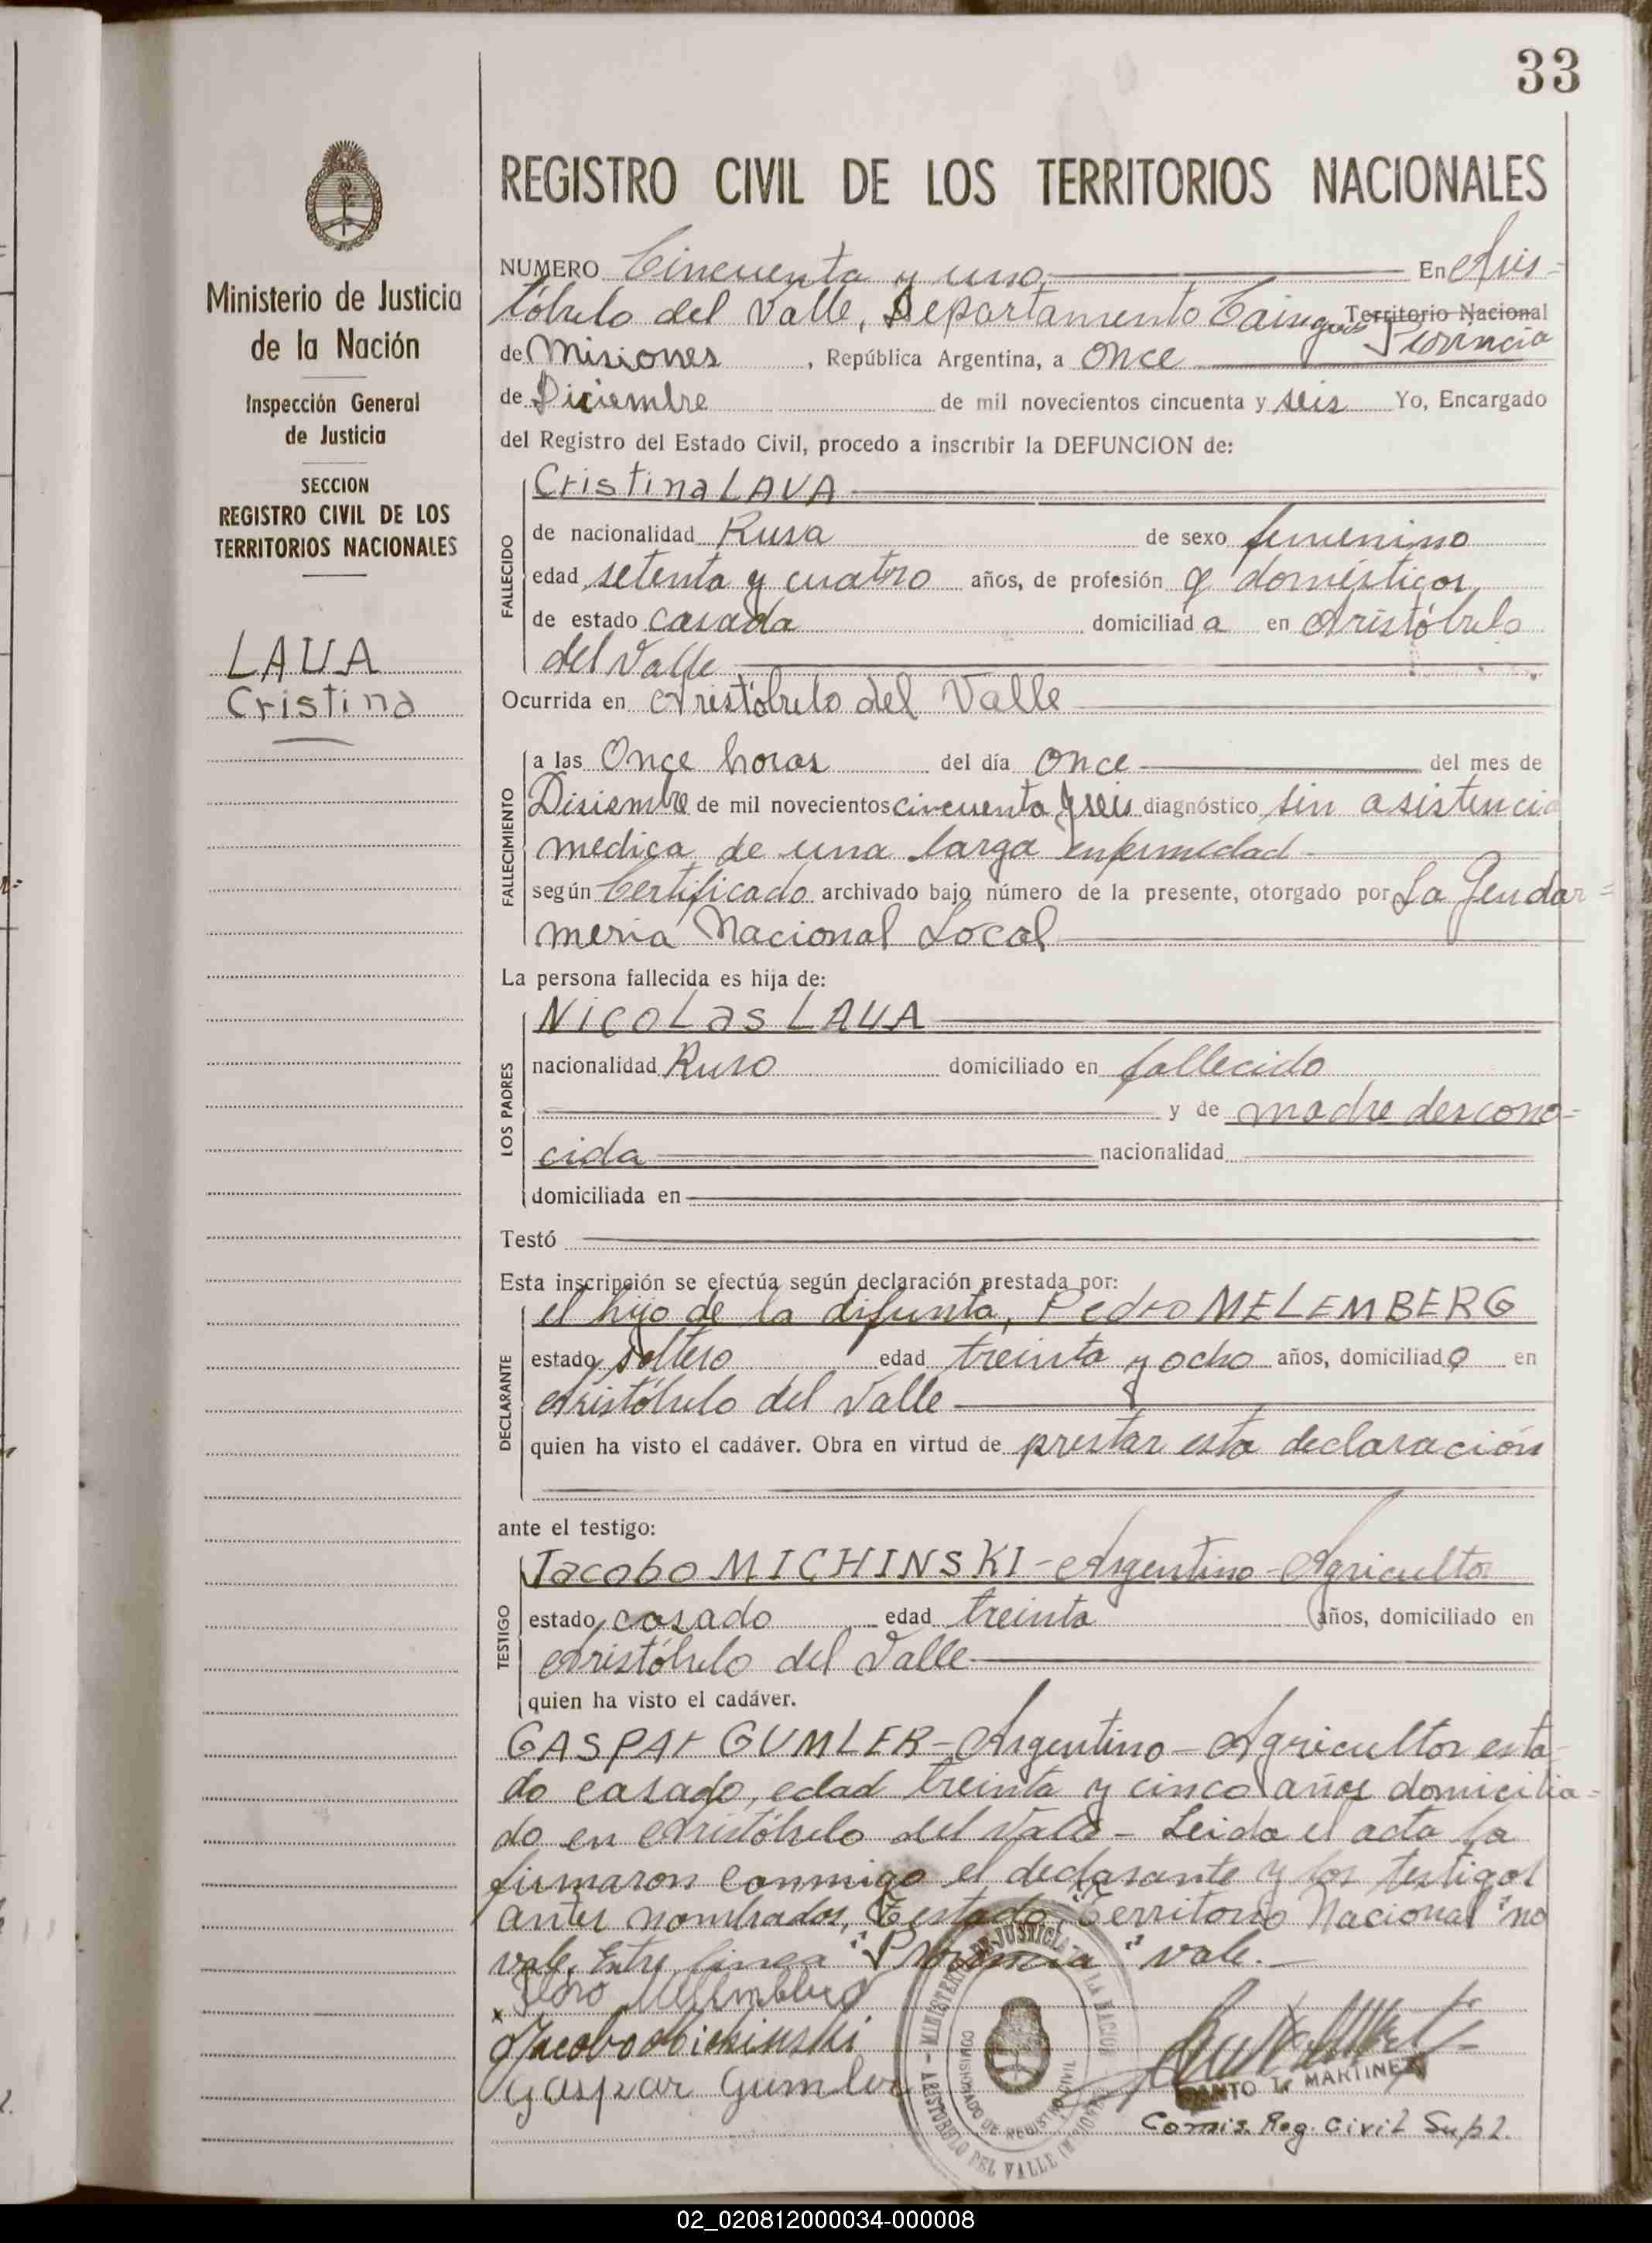 33
REGISTRO CIVIL DE LOS TERRITORIOS NACIONALES
Ministerio de Justicia
de la Nación
Inspección General
de Justicia
SECCION
REGISTRO CIVIL DE LOS
TERRITORIOS NACIONALES
LAUA
Cristina
NUMERO Cincuenta y uno En Aris=
tóbulo del Valle, Departamento Cainguas Territorio Nacional Provincia
de Misiones, República Argentina, a once
de Diciembre de mil novecientos cincuenta y seis Yo, Encargado
del Registro del Estado Civil, procedo a inscribir la DEFUNCION de:
Cristina LAUA
FALLECIDO
de nacionalidad Rusa de sexo femenino
edad setenta y cuatro años, de profesión q domésticos
de estado casada domiciliada en Aristóbulo
del Valle
Ocurrida en Aristóbulo del Valle
FALLECIMIENTO
a las Once horas del día once del mes de
Disiembre de mil novecientos cincuenta y seis diagnóstico sin asistencia
medica de una larga enfermedad
según Certificado archivado bajo número de la presente, otorgado por La Gendar=
meria Nacional Local
La persona fallecida es hija de:
LOS PADRES
Nicolas LAUA
nacionalidad Ruso domiciliado en fallecido
y de madre descono=
cida nacionalidad
domiciliada en
Testó
Esta inscripción se efectúa según declaración prestada por:
DECLARANTE
el hijo de la difunta, Pedro MELEMBERG
estado soltero edad treinta y ocho años, domiciliado en
Aristóbulo del Valle
quien ha visto el cadáver. Obra en virtud de prestar esta declaración
ante el testigo:
TESTIGO
Jacobo MICHINSKI - Argentino - Agricultor
estado casado edad treinta años, domiciliado en
Aristóbulo del Valle
quien ha visto el cadáver.
GASPAr GUMLER - Argentino - Agricultor esta
do casado, edad treinta y cinco años domicilia=
do en Aristóbulo del Valle - Leida el acta la
firmaron conmigo el declarante y los testigos
antes nombrados, Testado "Territorio Nacional" no
vale, Entre linea "Provincia" vale.-
Pedro Melemberg
Jacobo Michinski
Gaspar Gumler
MINISTERIO DE JUSTICIA DE LA NACION
ENCARGADO DE REGISTRO CIVIL
ARISTOBULO DEL VALLE (MISIONES)
SANTO I. MARTINEZ
Comis. Reg. Civil Supl.
02_020812000034-000008